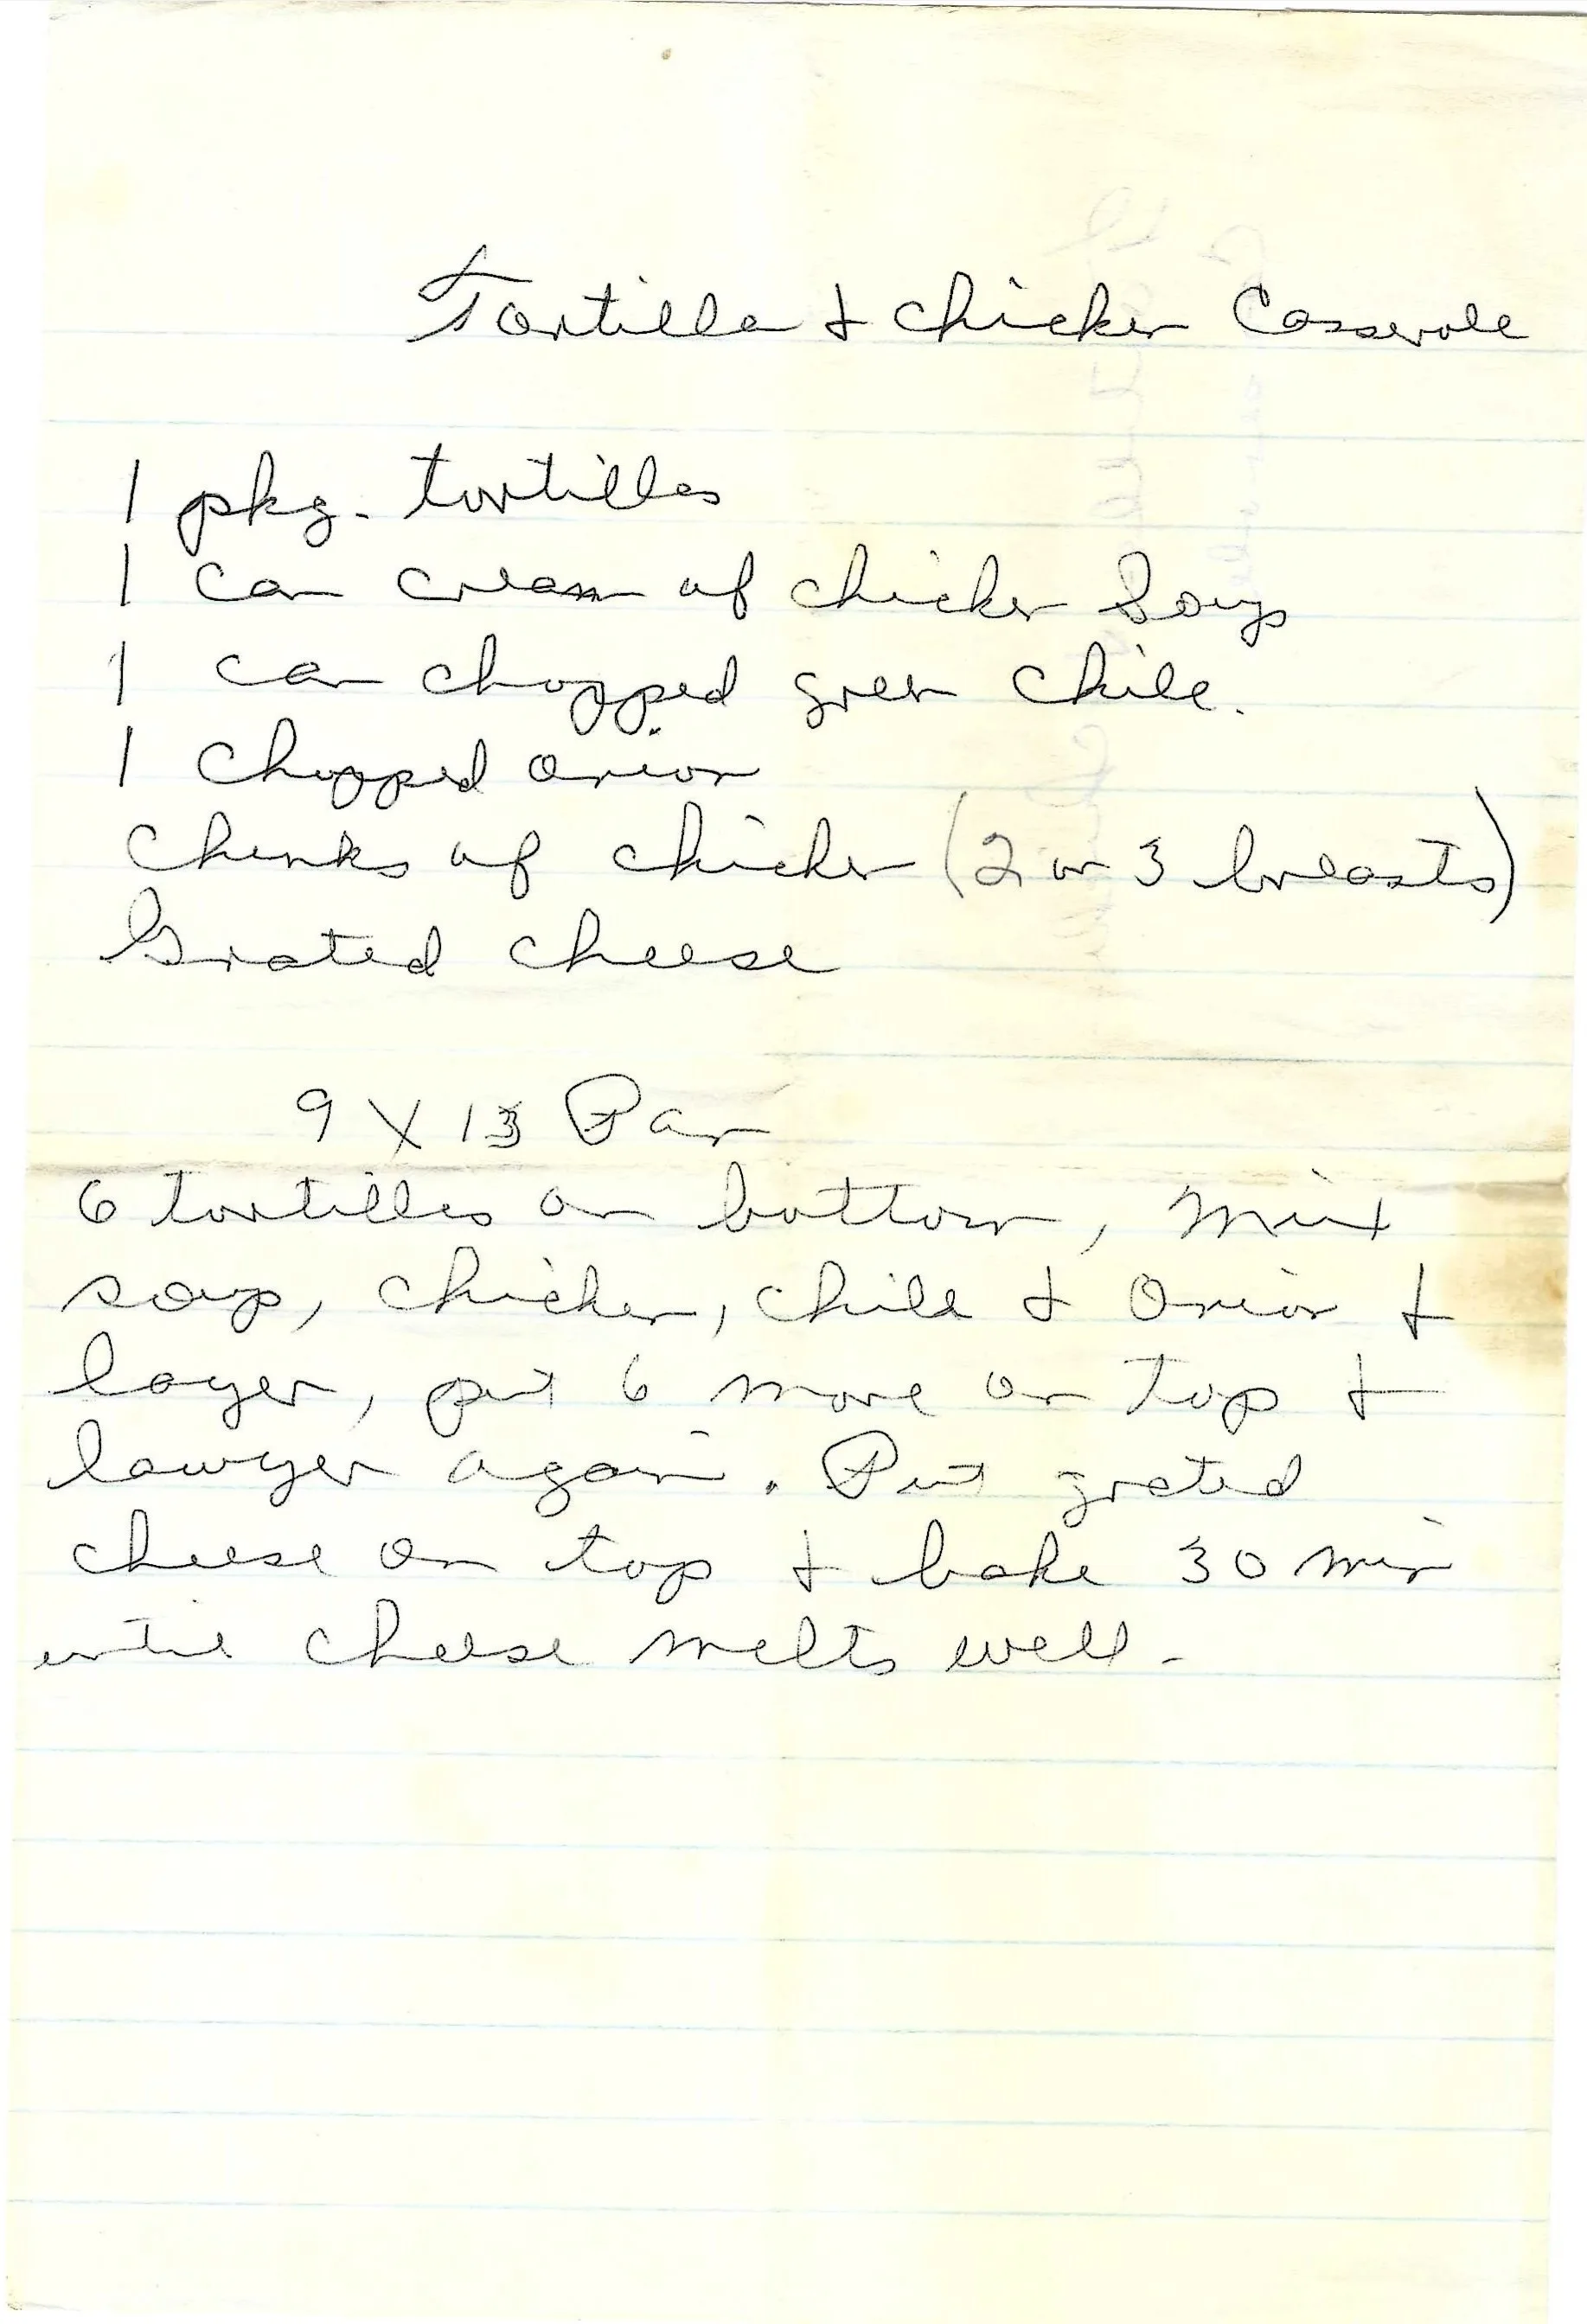 Tortilla + chicken Casserole
1 pkg. tortillas
1 can cream of chicken Soup
1 can chopped green chile.
1 chopped onion
Chunks of chicken (2 or 3 breasts)
Grated cheese
9 X 13 Pan
6 tortillas on bottom, mix
soup, chicken, chile + onion +
layer, put 6 more on top +
lawyer again. Put grated
cheese on top + bake 30 min
until cheese melts well.